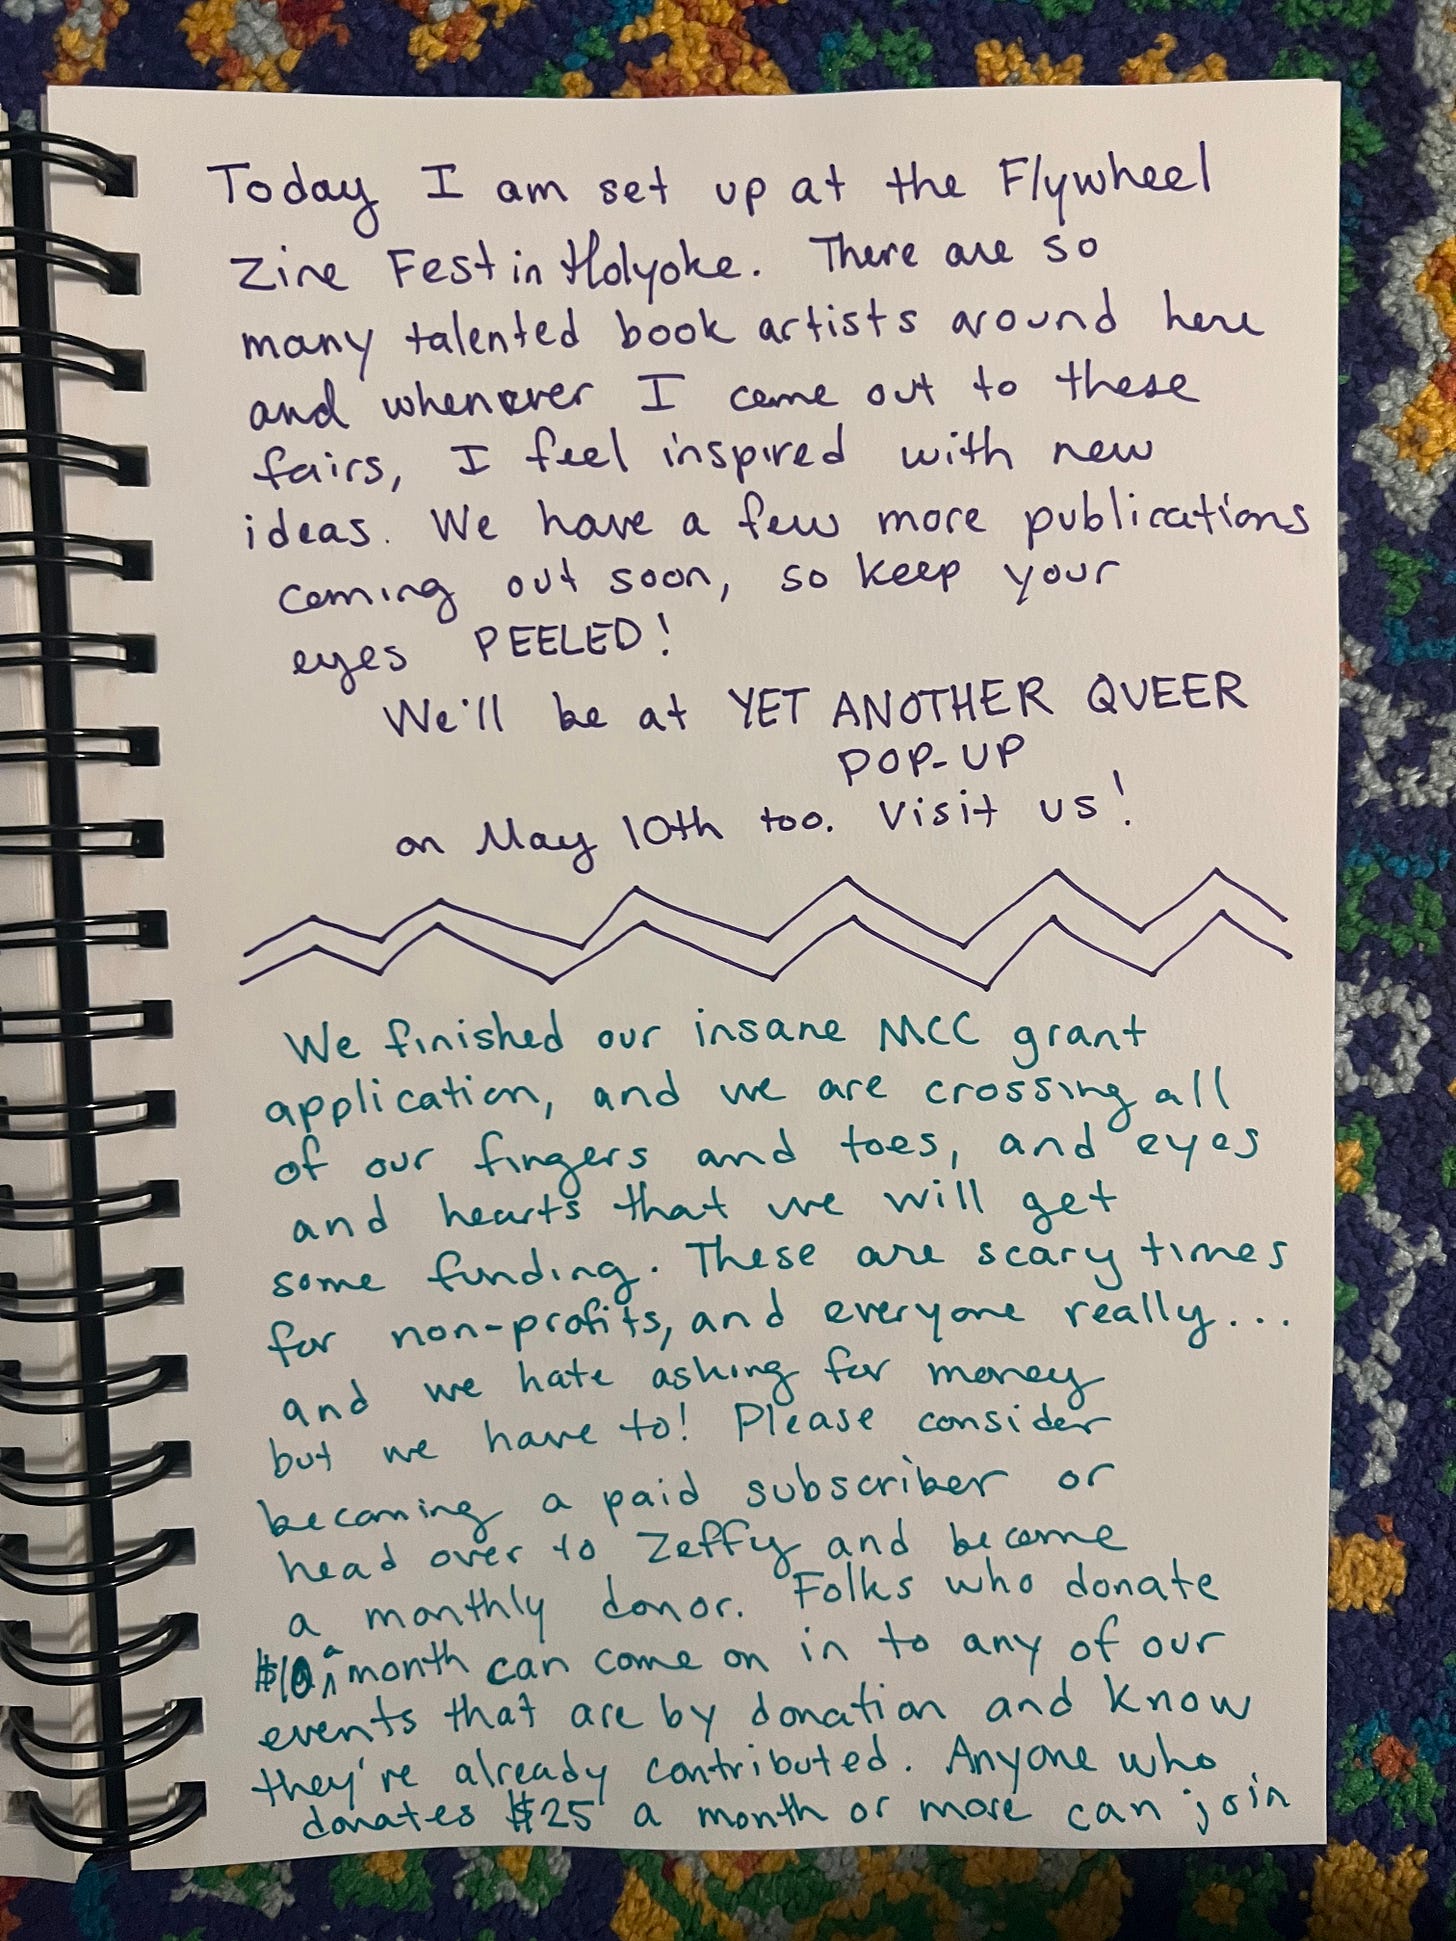 Today I am set up at the Flywheel
Zine Fest in Holyoke. There are so
many talented book artists around here
and whenever I come out to these
fairs, I feel inspired with new
ideas. We have a few more publications
coming out soon, so keep your
eyes PEELED!
We'll be at YET ANOTHER QUEER
POP-UP
on May 10th too. Visit us!
We finished our insane MCC grant
application, and we are crossing all
of our fingers and toes, and eyes
and hearts that we will get
some funding. These are scary times
for non-profits, and everyone really...
and we hate asking for money
but we have to! Please consider
becoming a paid subscriber or
head over to Zeffy and become
a monthly donor. Folks who donate
$10 a month can come on in to any of our
events that are by donation and know
they're already contributed. Anyone who
donates $25 a month or more can join